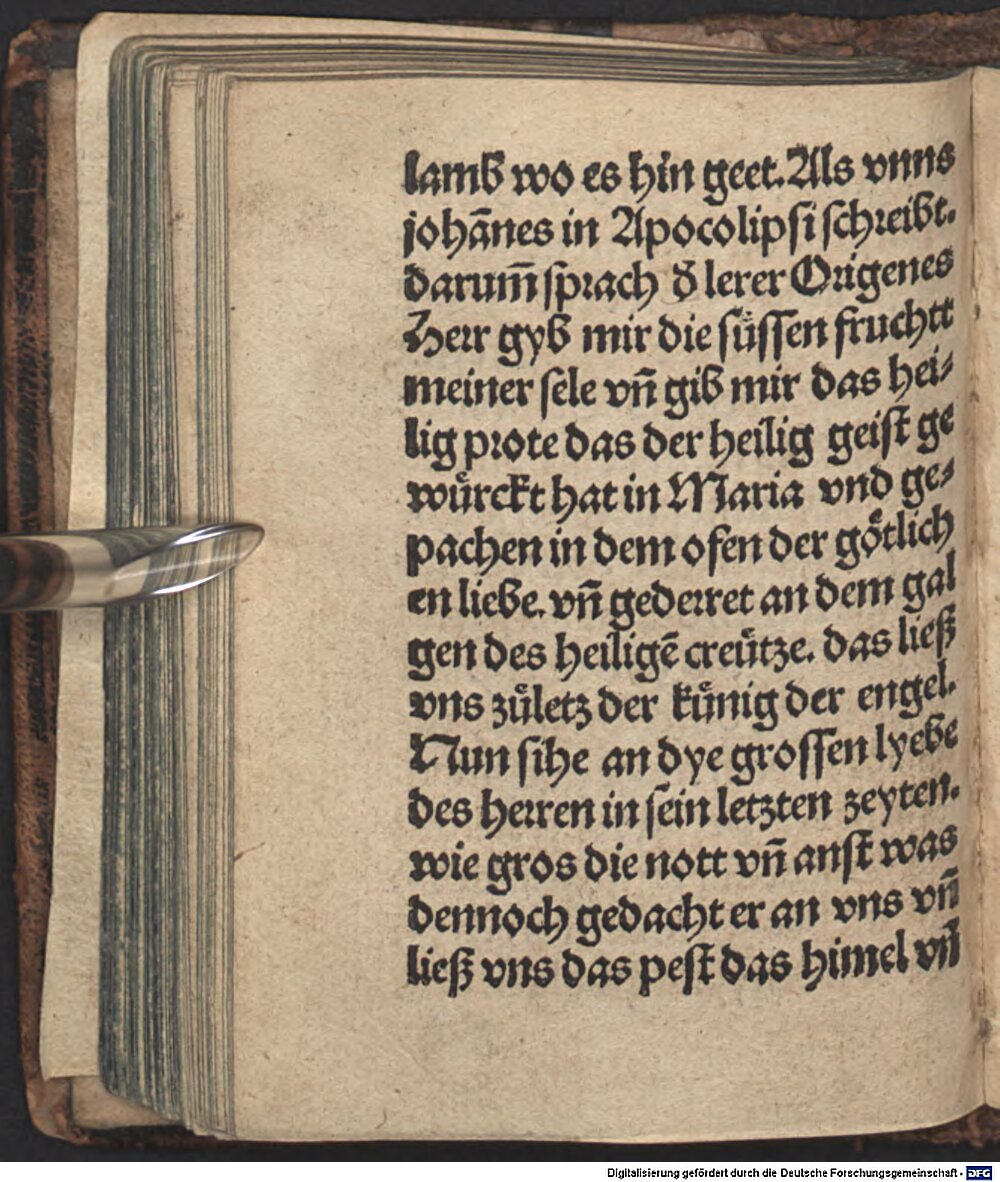 lamb wo es hin geet. Als vnns
johānes in Apocolipsi schreibt.
darum̄ sprach d̕ lerer Origenes
Herr gyb mir die süssen fruchtt
meiner sele vn̄ gib mir das hei⸗
lig prote das der heilig geist ge
würckt hat in Maria vnd ge⸗
pachen in dem ofen der götlich
en liebe. vn̄ gederret an dem gal
gen des heiligē creütze. das ließ
vns zületz der künig der engel.
Nun sihe an dye grossen lyebe
des herren in sein letzten zeyten.
wie gros die nott vn̄ anst was
dennoch gedacht er an vns vn̄
ließ vns das pest das himel vn̄
Digitalisierung gefördert durch die Deutsche Forschungsgemeinschaft - DFG